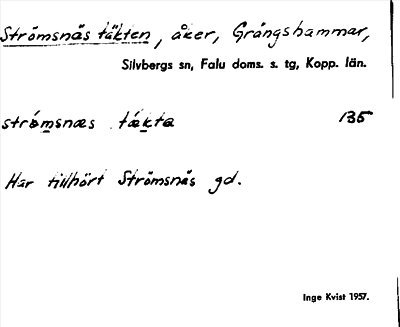 Strömsnäs täkten, åker, Grängshammar,
Silvbergs sn, Falu doms. s. tg, Kopp. län.
strö́msnæs tǽkta 135
Har tillhört Strömsnäs gd.
Inge Kvist 1957.